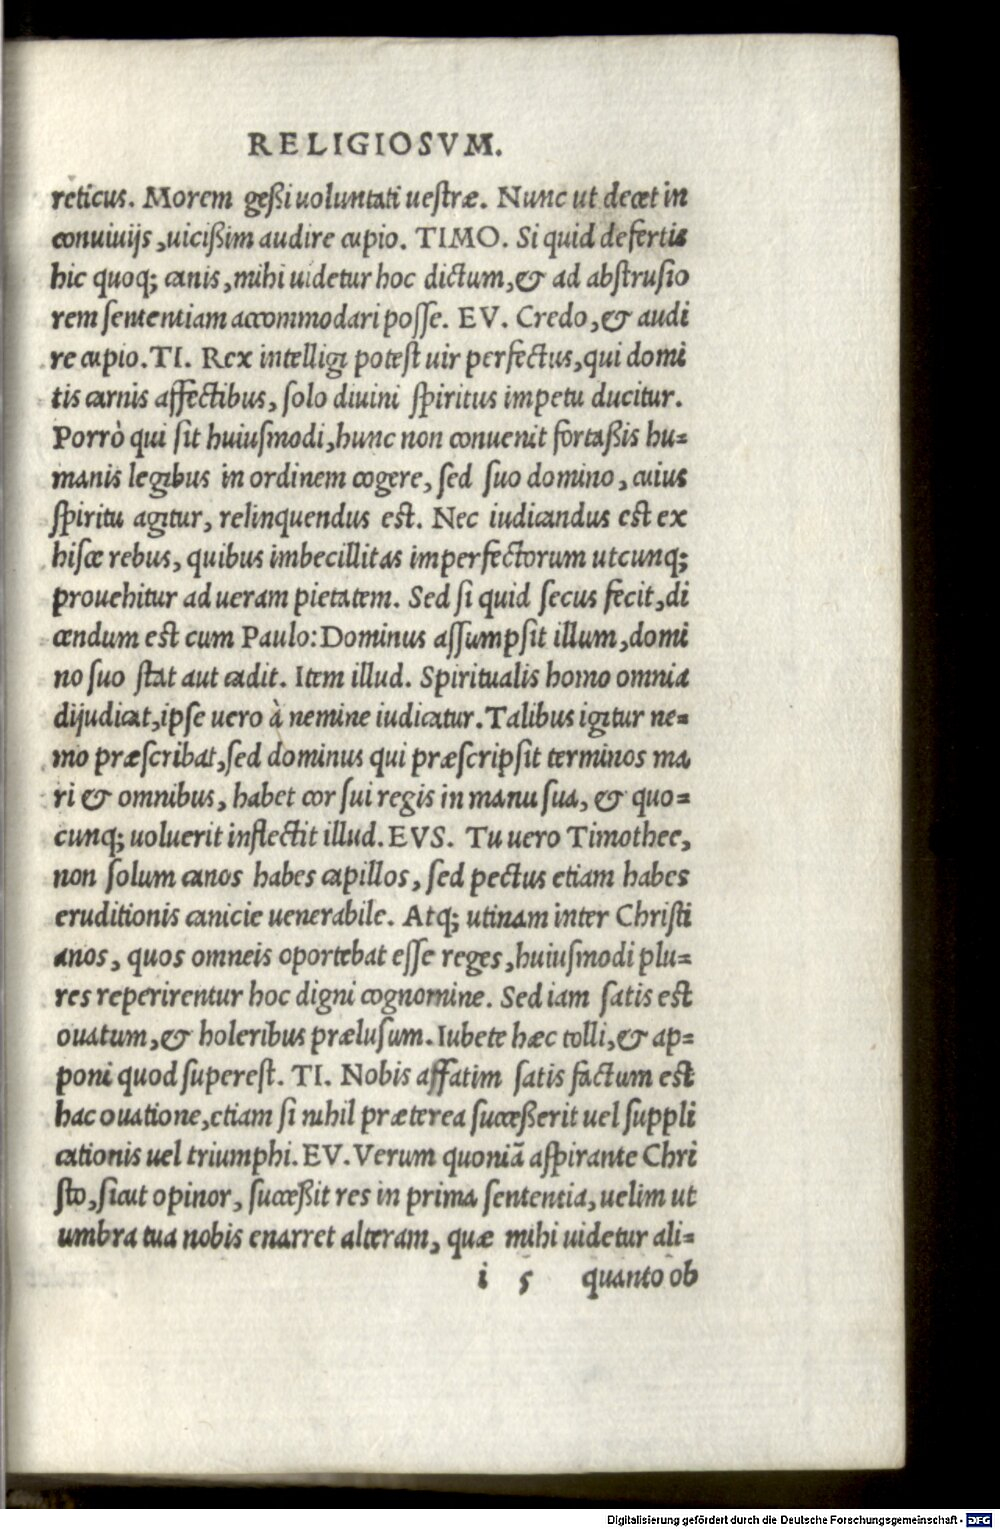 RELIGIOSVM.
reticus. Morem geßi uoluntati uestræ. Nunc ut decet in
conuiuijs, uicißim audire cupio. TIMO. Si quid defertis
hic quoq; canis, mihi uidetur hoc dictum, & ad abstrusio
rem sententiam accommodari posse. EV. Credo, & audi
re cupio. TI. Rex intelligi potest uir perfectus, qui domi
tis carnis affectibus, solo diuini spiritus impetu ducitur.
Porrò qui sit huiusmodi, hunc non conuenit fortaßis hu=
manis legibus in ordinem cogere, sed suo domino, cuius
spiritu agitur, relinquendus est. Nec iudicandus est ex
hisce rebus, quibus imbecillitas imperfectorum utcunq;
prouehitur ad ueram pietatem. Sed si quid secus fecit, di
cendum est cum Paulo: Dominus assumpsit illum, domi
no suo stat aut cadit. Item illud. Spiritualis homo omnia
dijudicat, ipse uero à nemine iudicatur. Talibus igitur ne=
mo præscribat, sed dominus qui præscripsit terminos ma
ri & omnibus, habet cor sui regis in manu sua, & quo=
cunq; uoluerit inflectit illud. EVS. Tu uero Timothee,
non solum canos habes capillos, sed pectus etiam habes
eruditionis canicie uenerabile. Atq; utinam inter Christi
anos, quos omneis oportebat esse reges, huiusmodi plu=
res reperirentur hoc digni cognomine. Sed iam satis est
ouatum, & holeribus prælusum. Iubete hæc tolli, & ap=
poni quod superest. TI. Nobis affatim satis factum est
hac ouatione, etiam si nihil præterea succeßerit uel suppli
cationis uel triumphi. EV. Verum quoniã aspirante Chri
sto, sicut opinor, succeßit res in prima sententia, uelim ut
umbra tua nobis enarret alteram, quæ mihi uidetur ali=
i 5 quanto ob
Digitalisierung gefördert durch die Deutsche Forschungsgemeinschaft - DFG